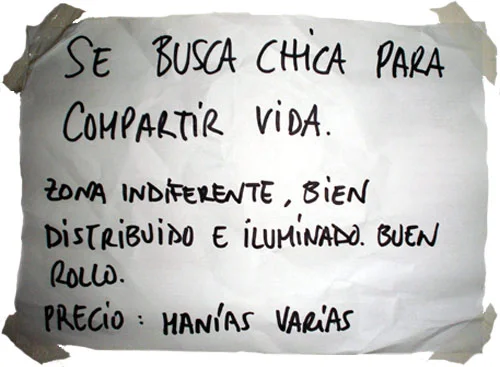 SE BUSCA CHICA PARA
COMPARTIR VIDA.
ZONA INDIFERENTE, BIEN
DISTRIBUIDO E ILUMINADO. BUEN
ROLLO.
PRECIO: MANÍAS VARIAS